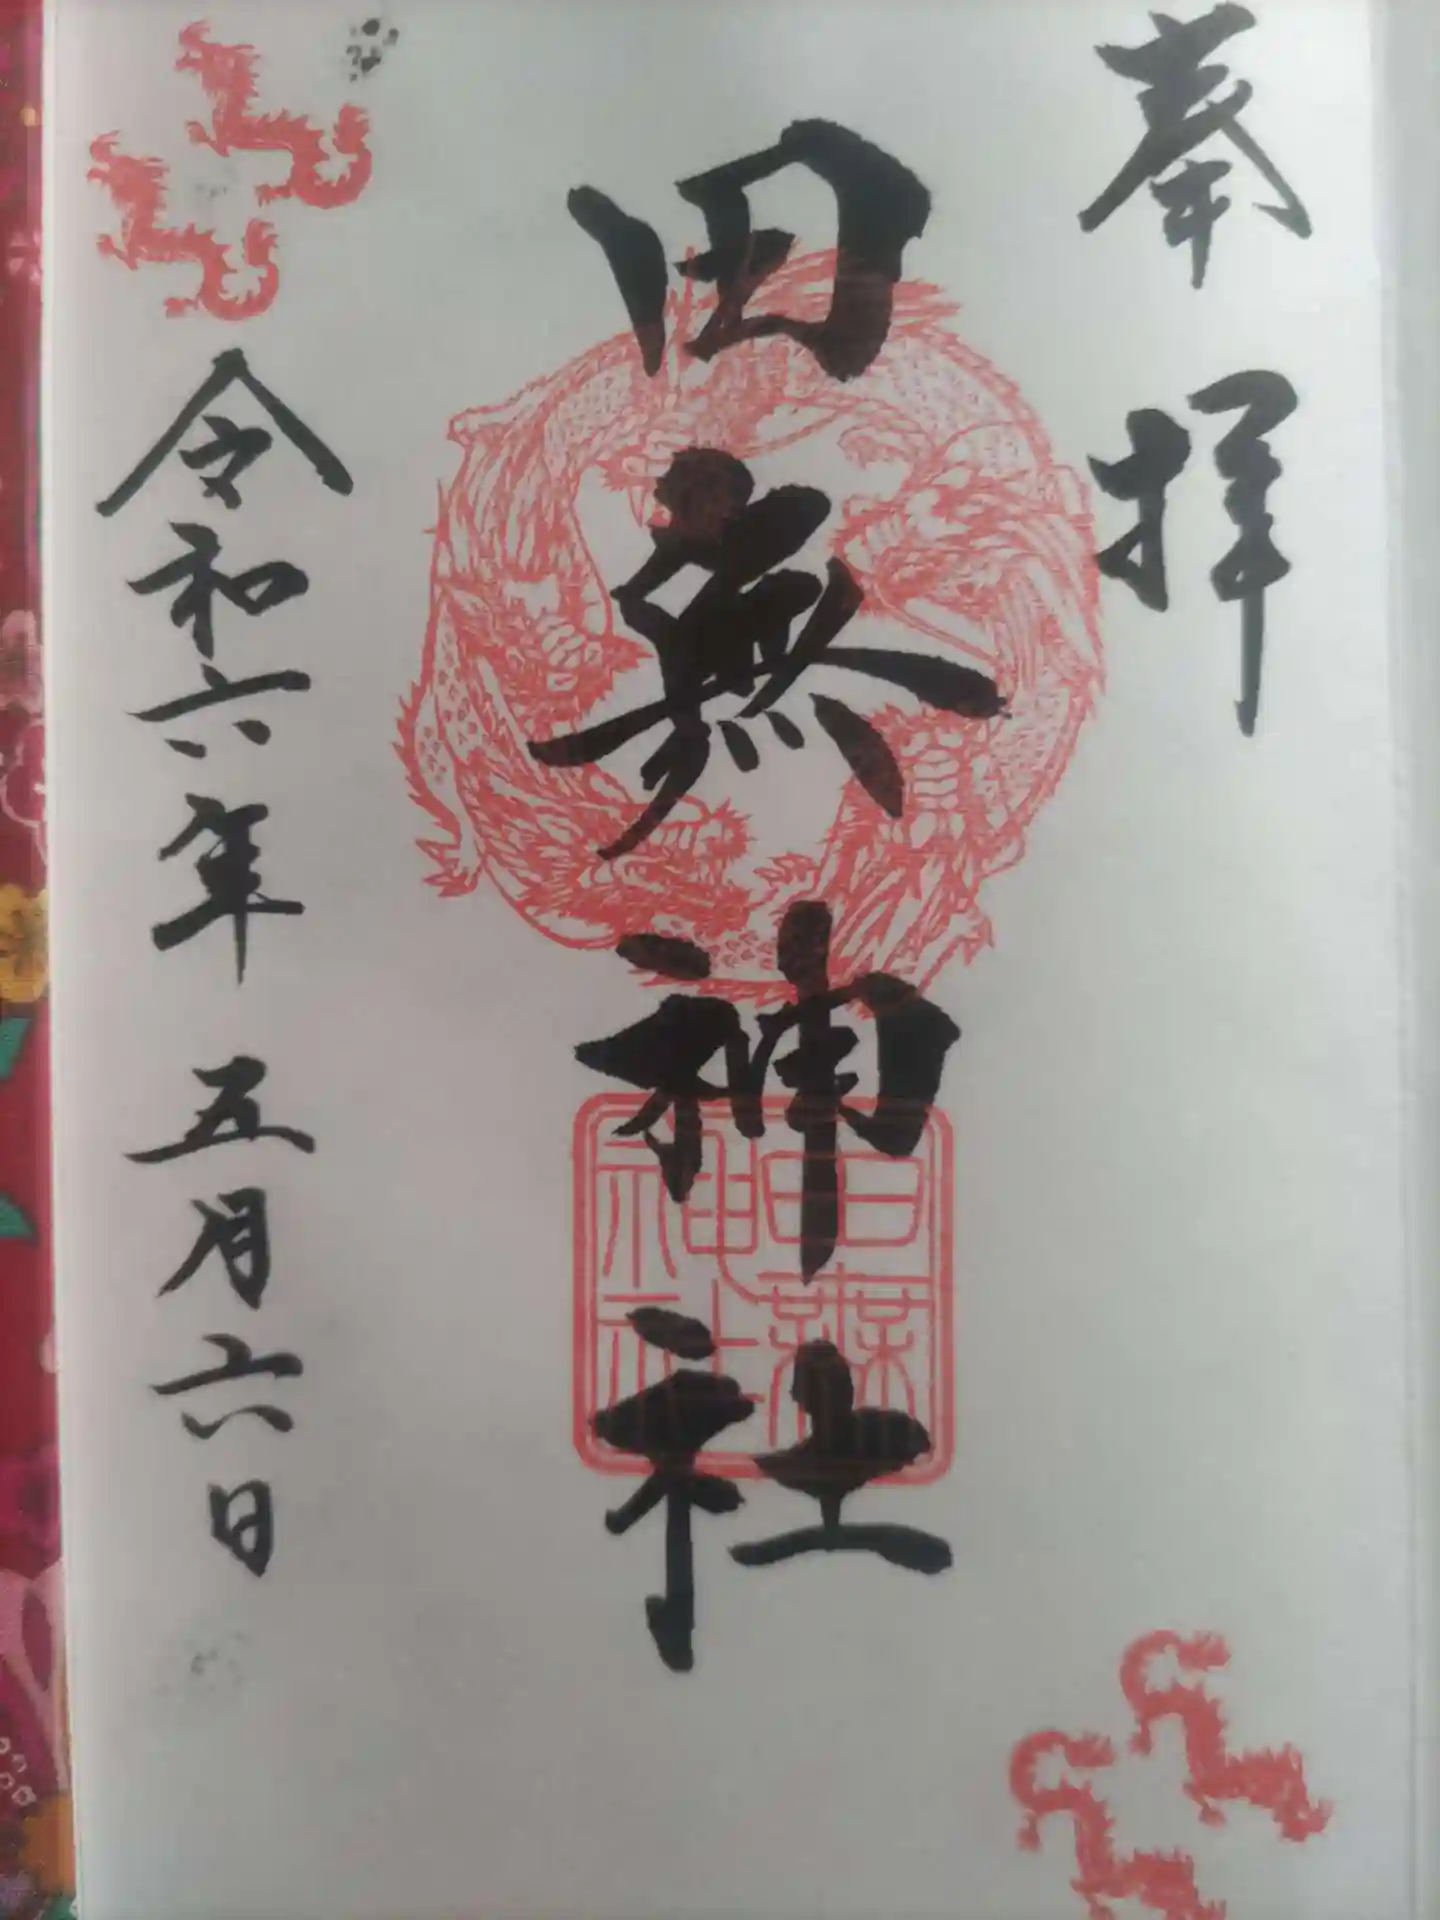 奉拝
田無神社
田無神社
令和六年五月六日